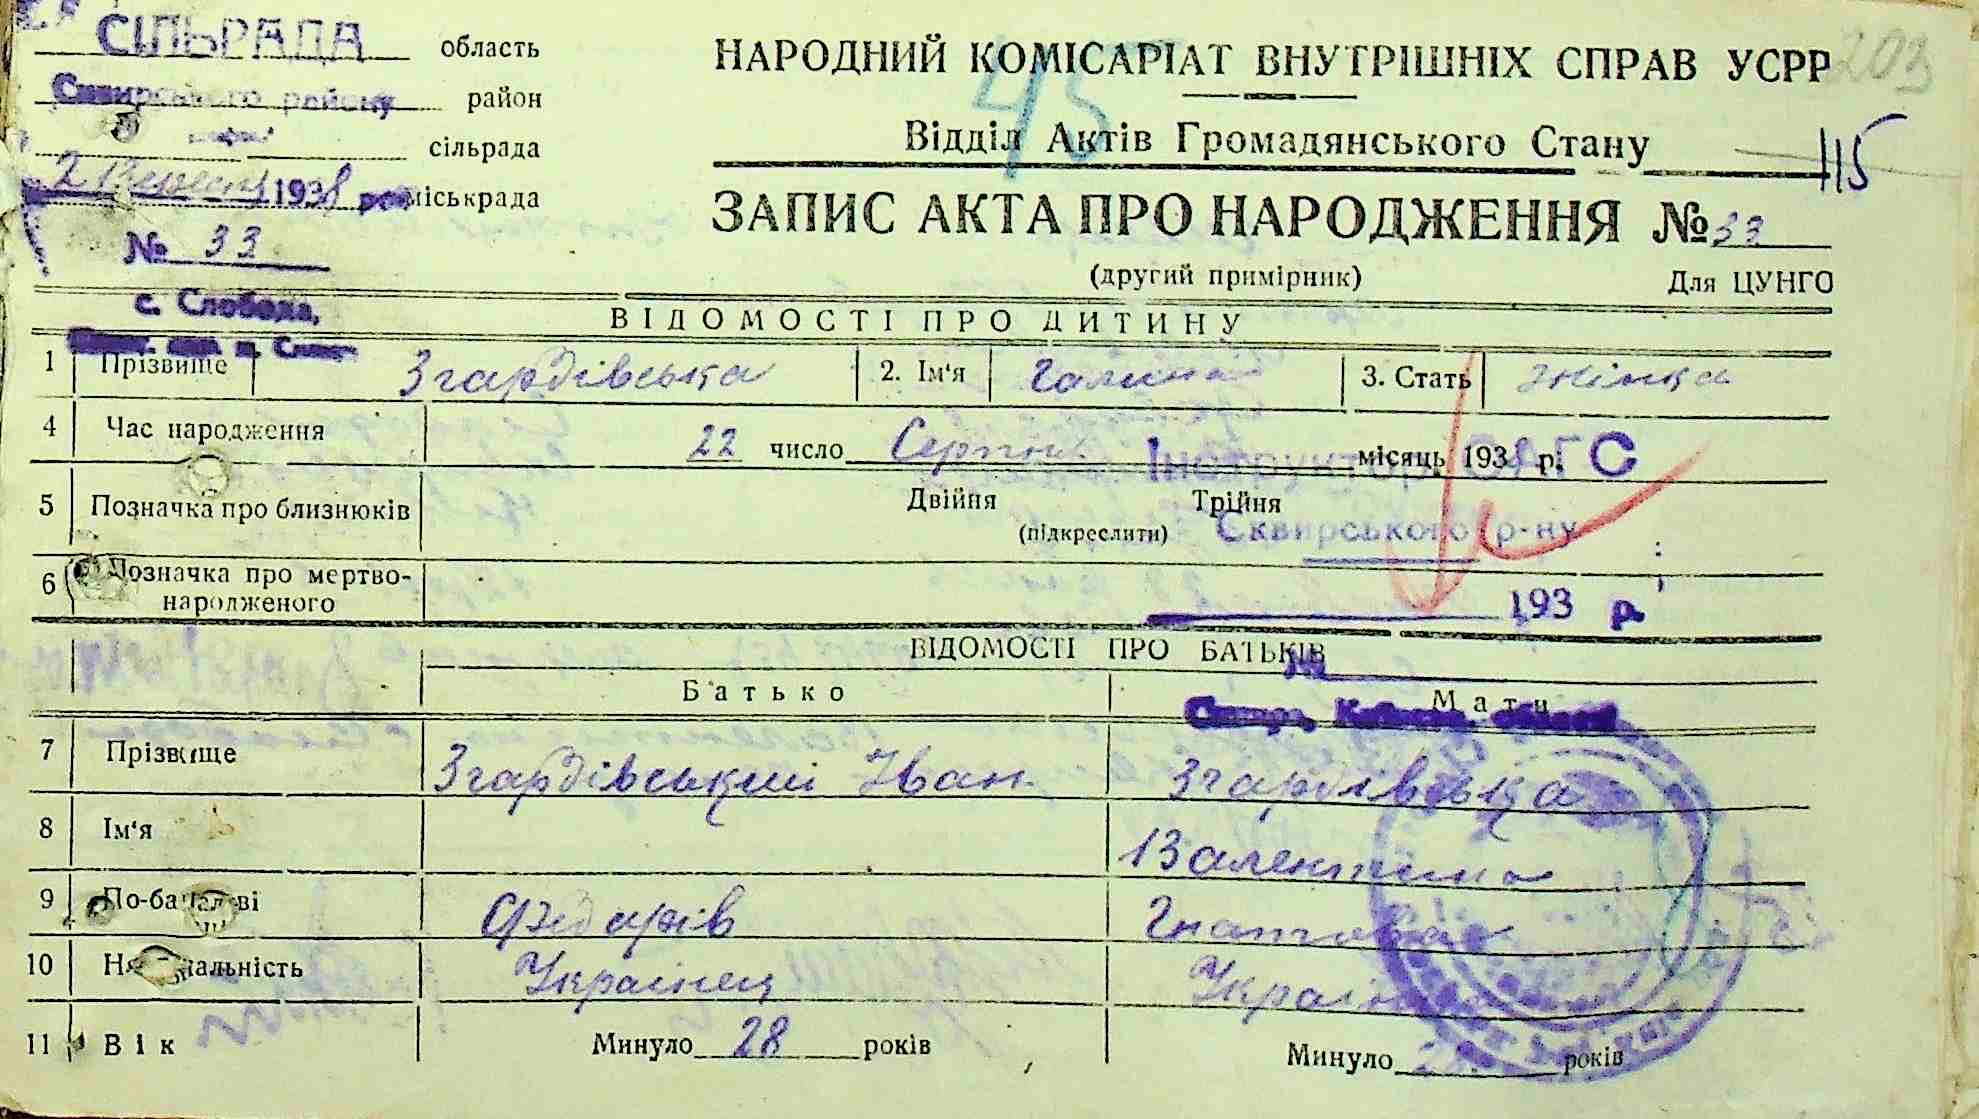 СІЛЬРАДА область
Сквирського району район
сільрада
2 Вересня 1938 р. міськрада
№ 33
с. Слобода,
203
НАРОДНИЙ КОМІСАРІАТ ВНУТРІШНІХ СПРАВ УСРР
45
Відділ Актів Громадянського Стану
115
ЗАПИС АКТА ПРО НАРОДЖЕННЯ № 33
(другий примірник) Для ЦУНГО
ВІДОМОСТІ ПРО ДИТИНУ
1 Прізвище Згардівська 2. Ім'я Галина 3. Стать жінка
4 Час народження 22 число Серпня місяць 1938 р.
Інструктор ЗАГС
5 Позначка про близнюків Двійня Трійня
(підкреслити)
Сквирського р-ну
6 Позначка про мертво-
народженого
193 р.
ВІДОМОСТІ ПРО БАТЬКІВ
Батько Мати
Сквира, Київськ. області
7 Прізвище Згардівський Іван Згардівська
8 Ім'я Валентина
9 По-батькові Федорів Гнатова
10 Національність Українец Україн
11 Вік Минуло 28 років Минуло років